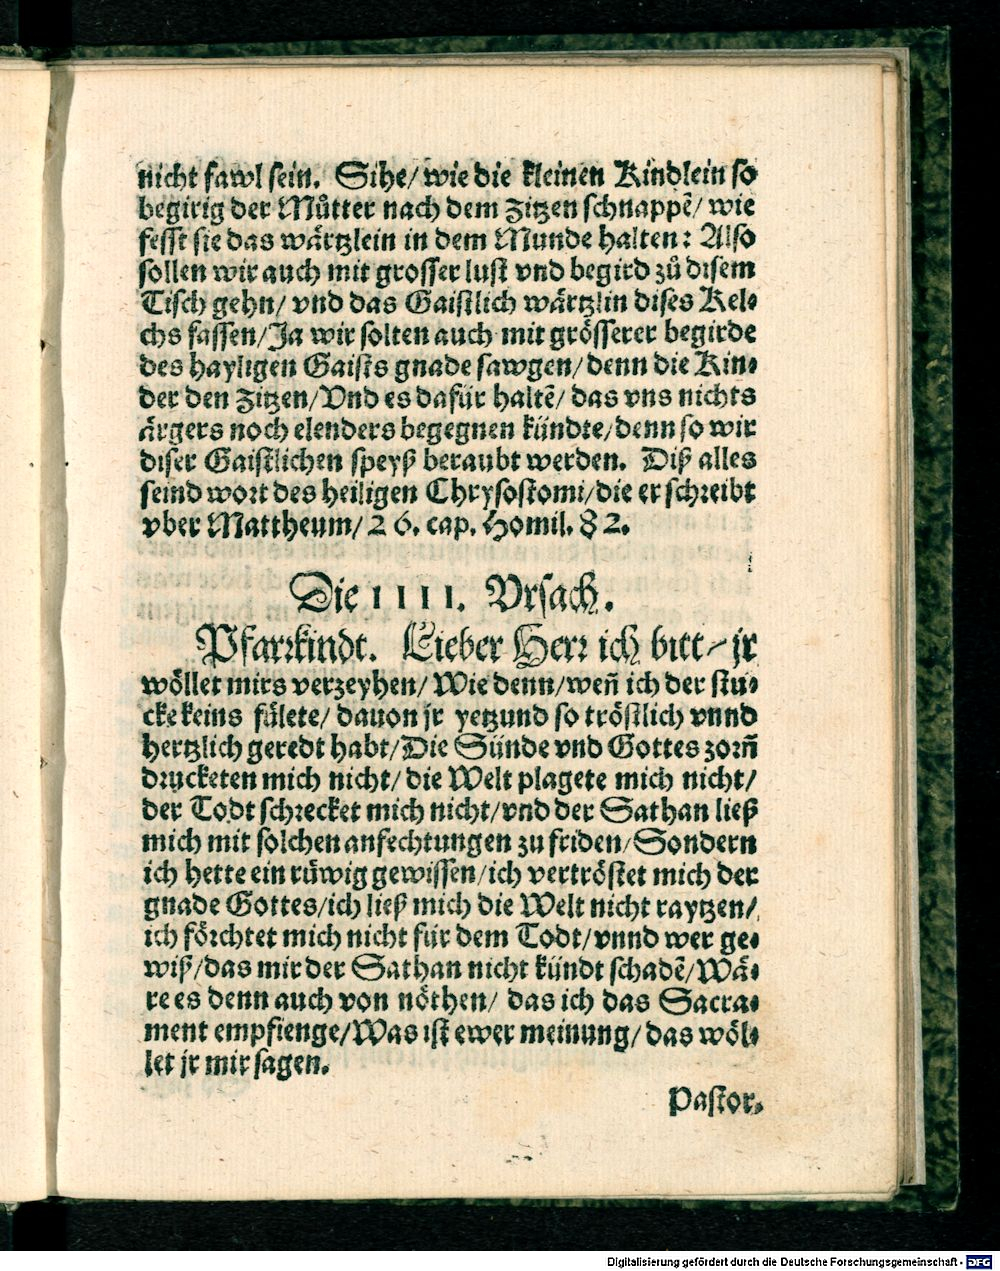 nicht fawl sein. Sihe/ wie die kleinen Kindlein so
begirig der Můtter nach dem Zitzen schnappẽ/ wie
fesst sie das wärtzlein in dem Munde halten: Also
sollen wir auch mit grosser lust vnd begird zů disem
Tisch gehn/ vnd das Gaistlich wärtzlin dises Kel⸗
chs fassen/ Ja wir solten auch mit grösserer begirde
des hayligen Gaists gnade sawgen/ denn die Kin⸗
der den Zitzen/ Vnd es dafür haltẽ/ das vns nichts
ärgers noch elenders begegnen kündte/ denn so wir
diser Gaistlichen speyß beraubt werden. Diß alles
seind wort des heiligen Chrysostomi/ die er schreibt
vber Mattheum/ 26. cap. Homil. 82.
Die IIII. Vrsach.
Pfarrkindt. Lieber Herr ich bitt/ jr
wöllet mirs verzeyhen/ Wie denn/ weñ ich der stu⸗
cke keins fülete/ dauon jr yetzund so tröstlich vnnd
hertzlich geredt habt/ Die Sünde vnd Gottes zorñ
drucketen mich nicht/ die Welt plagete mich nicht/
der Todt schrecket mich nicht/ vnd der Sathan ließ
mich mit solchen anfechtungen zu friden/ Sondern
ich hette ein rüwig gewissen/ ich vertröstet mich der
gnade Gottes/ ich ließ mich die Welt nicht raytzen/
ich förchtet mich nicht für dem Todt/ vnnd wer ge⸗
wiß/ das mir der Sathan nicht kündt schadẽ/ Wä⸗
re es denn auch von nöthen/ das ich das Sacra⸗
ment empfienge/ Was ist ewer meinung/ das wöl⸗
let jr mir sagen.
Pastor.
Digitalisierung gefördert durch die Deutsche Forschungsgemeinschaft - DFG